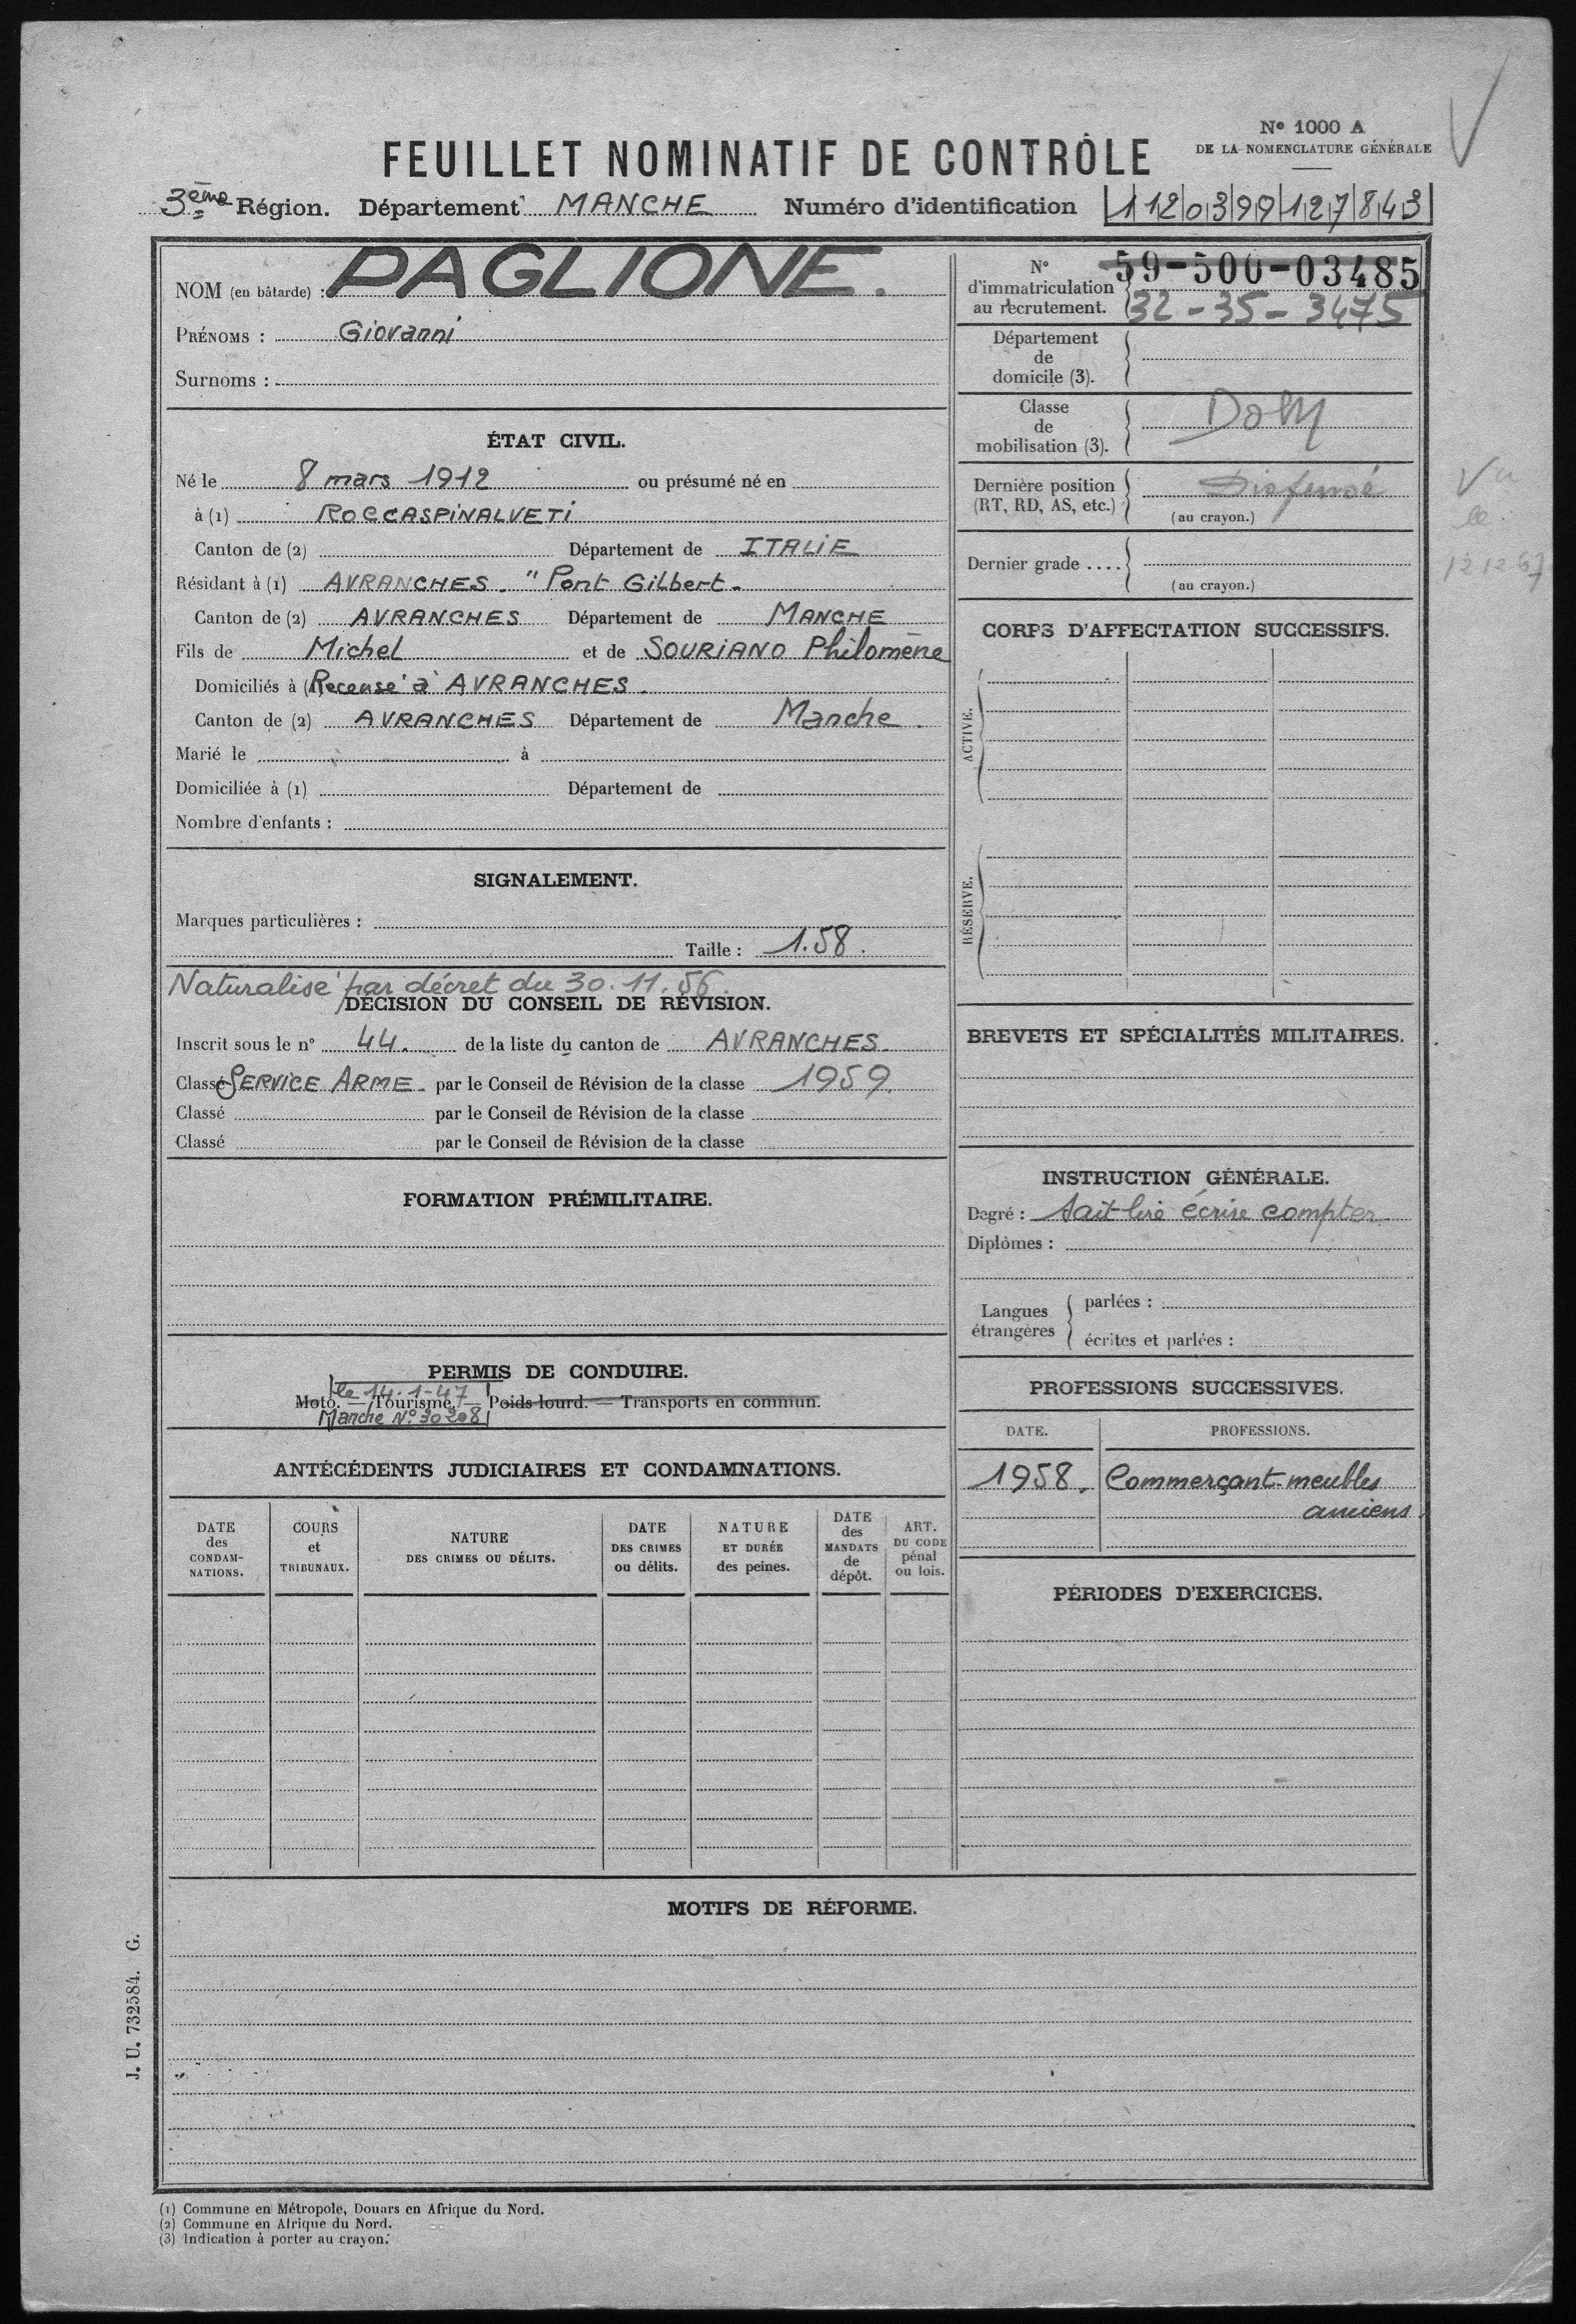 N° 1000 A
DE LA NOMENCLATURE GÉNÉRALE
FEUILLET NOMINATIF DE CONTRÔLE
3ème Région. Département MANCHE Numéro d'identification 1 12 03 99 127 843
NOM (en bâtarde) : PAGLIONE.
PRÉNOMS : Giovanni
Surnoms :
ÉTAT CIVIL.
Né le 8 mars 1912 ou présumé né en
à (1) ROCCASPINALVETI
Canton de (2) Département de ITALIE
Résidant à (1) AVRANCHES. "Pont Gilbert.
Canton de (2) AVRANCHES Département de MANCHE
Fils de Michel et de SOURIANO Philomène
Domiciliés à (1) Recensé à AVRANCHES.
Canton de (2) AVRANCHES Département de Manche.
Marié le à
Domiciliée à (1) Département de
Nombre d'enfants :
SIGNALEMENT.
Marques particulières :
Taille : 1.58.
Naturalisé par décret du 30.11.56.
DÉCISION DU CONSEIL DE RÉVISION.
Inscrit sous le n° 44. de la liste du canton de AVRANCHES.
Classé SERVICE ARME. par le Conseil de Révision de la classe 1959.
Classé par le Conseil de Révision de la classe
Classé par le Conseil de Révision de la classe
FORMATION PRÉMILITAIRE.
PERMIS DE CONDUIRE.
le 14.1-47
Moto. — Tourisme. — Poids lourd. — Transports en commun.
Manche N° 30208
ANTÉCÉDENTS JUDICIAIRES ET CONDAMNATIONS.
DATE des CONDAMNATIONS.
COURS et TRIBUNAUX.
NATURE DES CRIMES OU DÉLITS.
DATE DES CRIMES ou délits.
NATURE ET DURÉE des peines.
DATE des MANDATS de dépôt.
ART. DU CODE pénal ou lois.
N° d'immatriculation au recrutement. 59-500-03485
32-35-3475
Département de domicile (3).
Classe de mobilisation (3).
Dernière position (RT, RD, AS, etc.)
(au crayon.)
Dernier grade ....
(au crayon.)
Vu
le
CORPS D'AFFECTATION SUCCESSIFS.
ACTIVE.
RÉSERVE.
BREVETS ET SPÉCIALITÉS MILITAIRES.
INSTRUCTION GÉNÉRALE.
Degré : Sait lire écrire compter
Diplômes :
Langues étrangères
parlées :
écrites et parlées :
PROFESSIONS SUCCESSIVES.
DATE. PROFESSIONS.
1958. Commerçant-meubles
anciens
PÉRIODES D'EXERCICES.
MOTIFS DE RÉFORME.
J. U. 732584. G.
(1) Commune en Métropole, Douars en Afrique du Nord.
(2) Commune en Afrique du Nord.
(3) Indication à porter au crayon.